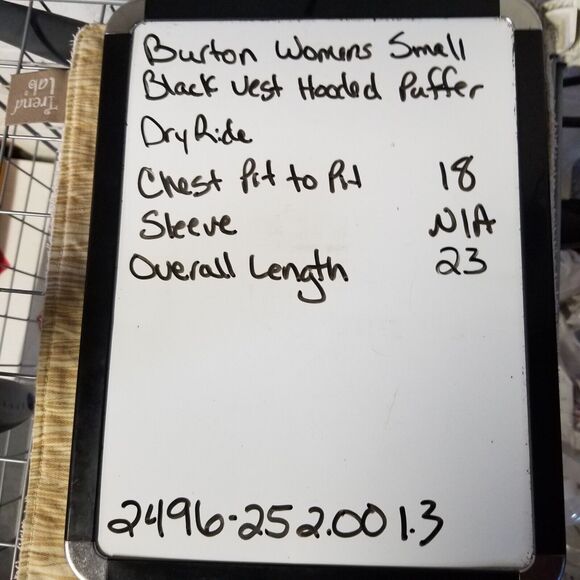 Burton Womens Small
Black Vest Hooded Puffer
DryRide
Chest Pit to Pit 18
Sleeve N/A
Overall Length 23
2496-252.001.3
Trend
Lab